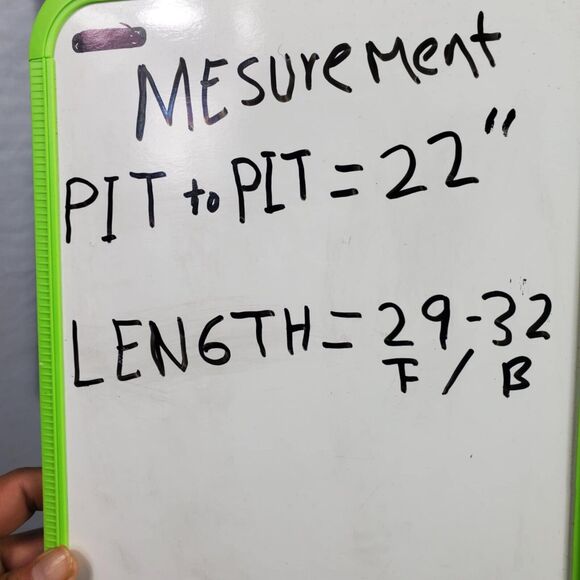 MEsureMent
PIT to PIT = 22"
LENGTH = 29-32
F / B